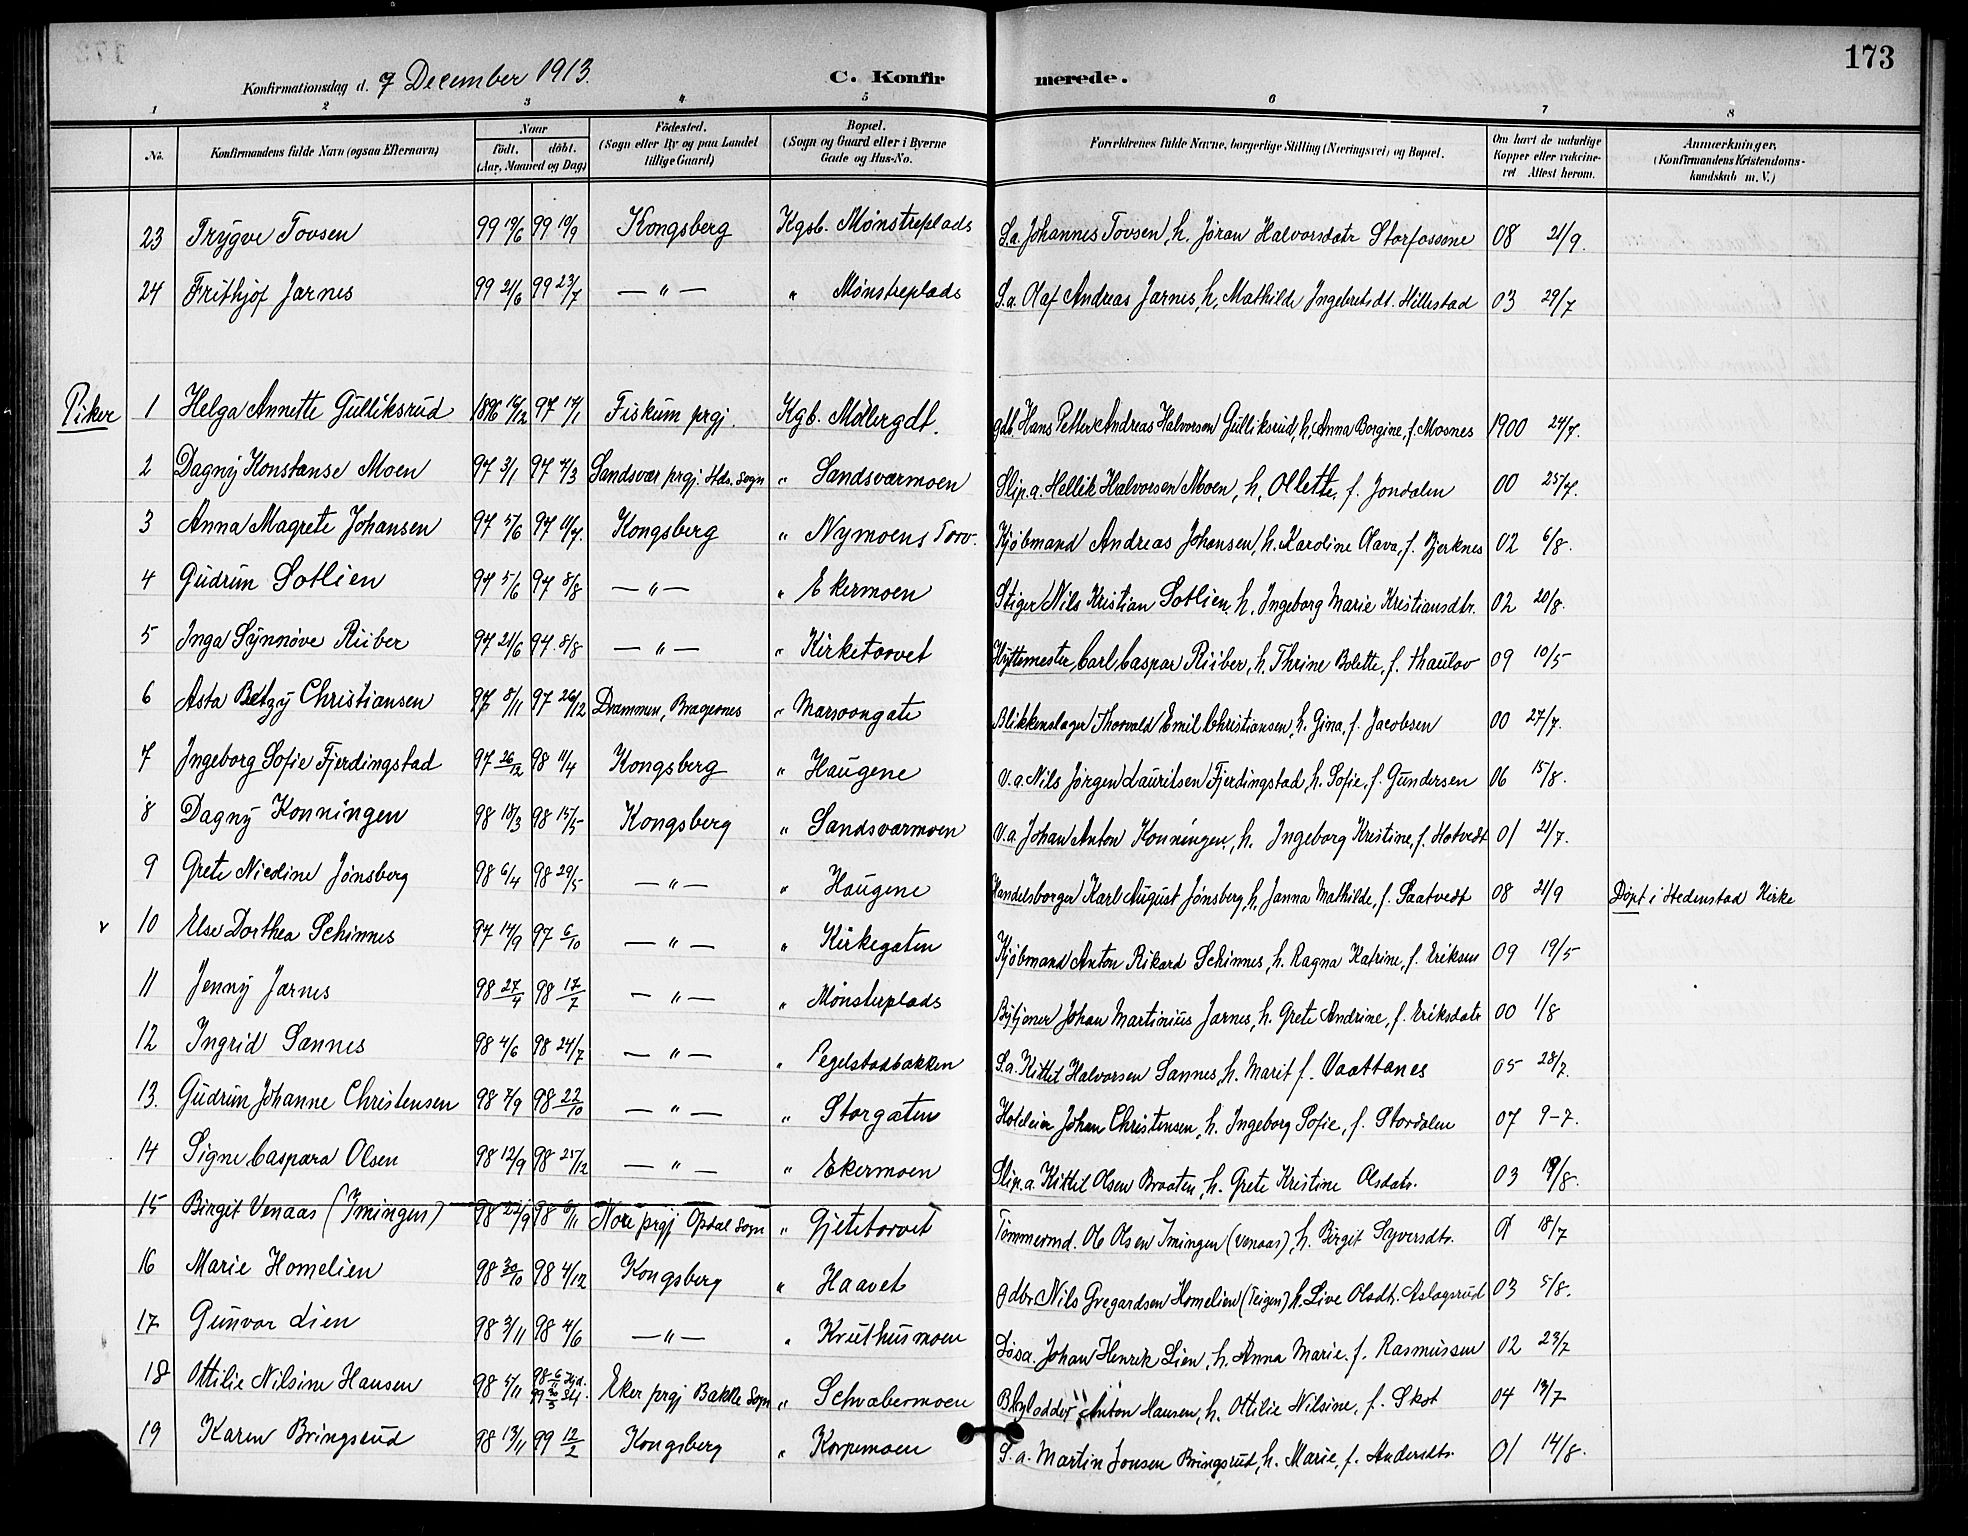 173
Konfirmationsdag d. 7 December 1913.
C. Konfirmerede.
1 2 3 4 5 6 7 8
No. Konfirmandens fulde Navn (ogsaa Efternavn) Naar födt. döbt. (Aar, Maaned og Dag) Födested. (Sogn eller By og paa Landet tillige Gaard) Bopæl. (Sogn og Gaard eller i Byerne Gade og Hus-No. Forældrenes fulde Navne, borgerlige Stilling (Næringsvei) og Bopæl. Om havt de naturlige Kopper eller vakcineret Attest herom. Anmærkninger. (Konfirmandens Kristendomskundskab m. V.)
23 Trygve Tovsen 99 19/6 99 10/9 Kongsberg Kgsb. Mønstreplads S.a. Johannes Tovsen, h. Jøran Halvorsdatr Storfossene 08 21/9.
24 Frithjof Jarnes 99 2/6 99 23/7 — " — " Mønstreplads S.a. Olaf Andreas Jarnes, h. Mathilde Ingebretsdt. Hillestad 03 29/7
Piker 1 Helga Annette Gulliksrud 1896 16/12 97 17/1 Fiskum prgj. Kgb. Møllergdt. gdb. Hans Petter Andreas Halvorsen Gulliksrud, h. Anna Borgine, f. Mosnes 1900 24/7.
2 Dagny Konstanse Moen 97 3/1 97 7/3 Sandsvær prgj. Hds. Sogn " Sandsværmoen Slip.a. Hellik Halvorsen Moen, h. Ollette, f. Jondalen 00 25/7.
3 Anna Magrete Johansen 97 5/6 97 11/7. Kongsberg " Nymoens Torv. Kjøbmand Andreas Johansen, h. Karoline Olava, f. Bjerknes 02 6/8.
4 Gudrun Sotlien 97 5/6 97 8/8 — " — " Ekermoen Stiger Nils Kristian Sotlien, h. Ingeborg Marie Kristiansdtr. 02 20/8.
5 Inga Synnøve Riiber 97 21/6 97 8/8 — " — " Kirketorvet Hyttemester Carl Caspar Riiber, h. Thrine Bolette, f. Thaulov 09 10/5
6 Asta Betzy Christiansen 97 8/11 97 26/12 Drammen, Bragernes " Marsoongate Blikkenslager Thorvald Emil Christiansen, h. Gina, f. Jacobsen 00 27/7.
7 Ingeborg Sofie Fjerdingstad 97 26/12 98 11/4 Kongsberg " Haugene V.a. Nils Jørgen Lauritsen Fjerdingstad, h. Sofie, f. Gundersen 06 15/8.
8 Dagny Konningen 98 18/3 98 15/5 Kongsberg " Sandsværmoen V.a. Johan Anton Konningen, h. Ingeborg Kristine, f. Hotvedt 01 21/7.
9 Grete Nicoline Jønsberg 98 6/4 98 29/5 — " — " Haugene Handelsborger Karl August Jønsberg, h. Janna Mathilde, f. Saatvedt 08 21/9 Döpt i Hedenstad Kirke
v 10 Else Dorthea Schinnes 97 14/9 97 6/10 — " — " Kirkegaten Kjøbmand Anton Rikard Schinnes, h. Ragna Katrine, f. Eriksen 09 19/5
11 Jenny Jarnes 98 27/4 98 17/7 — " — " Mønsterplads Bytjener Johan Martinius Jarnes, h. Grete Andrine, f. Eriksdatr 00 1/8
12 Ingrid Sannes 98 4/6 98 24/7 — " — " Pegelstadbakken S.a. Kittil Halvorsen Sannes, h. Marit f. Vaattanes 05 28/7.
13. Gudrun Johanne Christensen 98 7/9 98 22/10 — " — " Storgaten Hoteleier Johan Christensen, h. Ingeborg Sofie, f. Stordalen 07 9-7.
14 Signe Caspara Olsen 98 12/9 98 25/12 — " — " Ekermoen Slip.a. Kittil Olsen Braaten, h. Grete Kristine Olsdatr. 03 19/8.
15 Birgit Venaas (Imingen) 98 22/9 98 6/11 Nore prgj Opdal Sogn " Gjetetorvet Tømmermd. Ole Olsen Imingen (Venaas), h. Birgit Syversdtr. 01 18/7
16 Marie Homelien 98 30/10 98 4/12 Kongsberg " Haavet gdbr Nils Gregardsen Homelien (Teigen) h. Live Olsdtr. Aslagsrud 03 5/8.
17 Gunvor Lien 98 3/11 98 4/6 — " — " Kruthusmoen Løsa. Johan Henrik Lien, h. Anna Marie. f. Rasmussen 02 23/7
18 Ottilie Nilsine Hansen 98 5/11 98 6/11 Hjd. 99 30/3 Eker prgj Bakke Sogn " Schwabermoen Anton Hansen, h. Ottilie Nilsine, f. Skot 04 13/7
19 Karen Bringsrud 98 13/11 99 12/2 Kongsberg " Korpemoen S.a. Martin Jonsen Bringsrud, h. Marie, f. Andersdtr. 01 14/8.